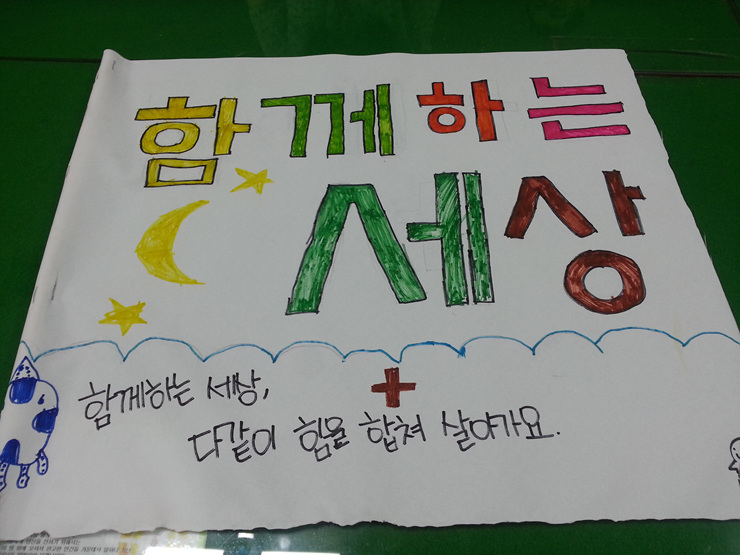 함께하는
세상
함께하는 세상,
다같이 힘을 합쳐 살아가요.